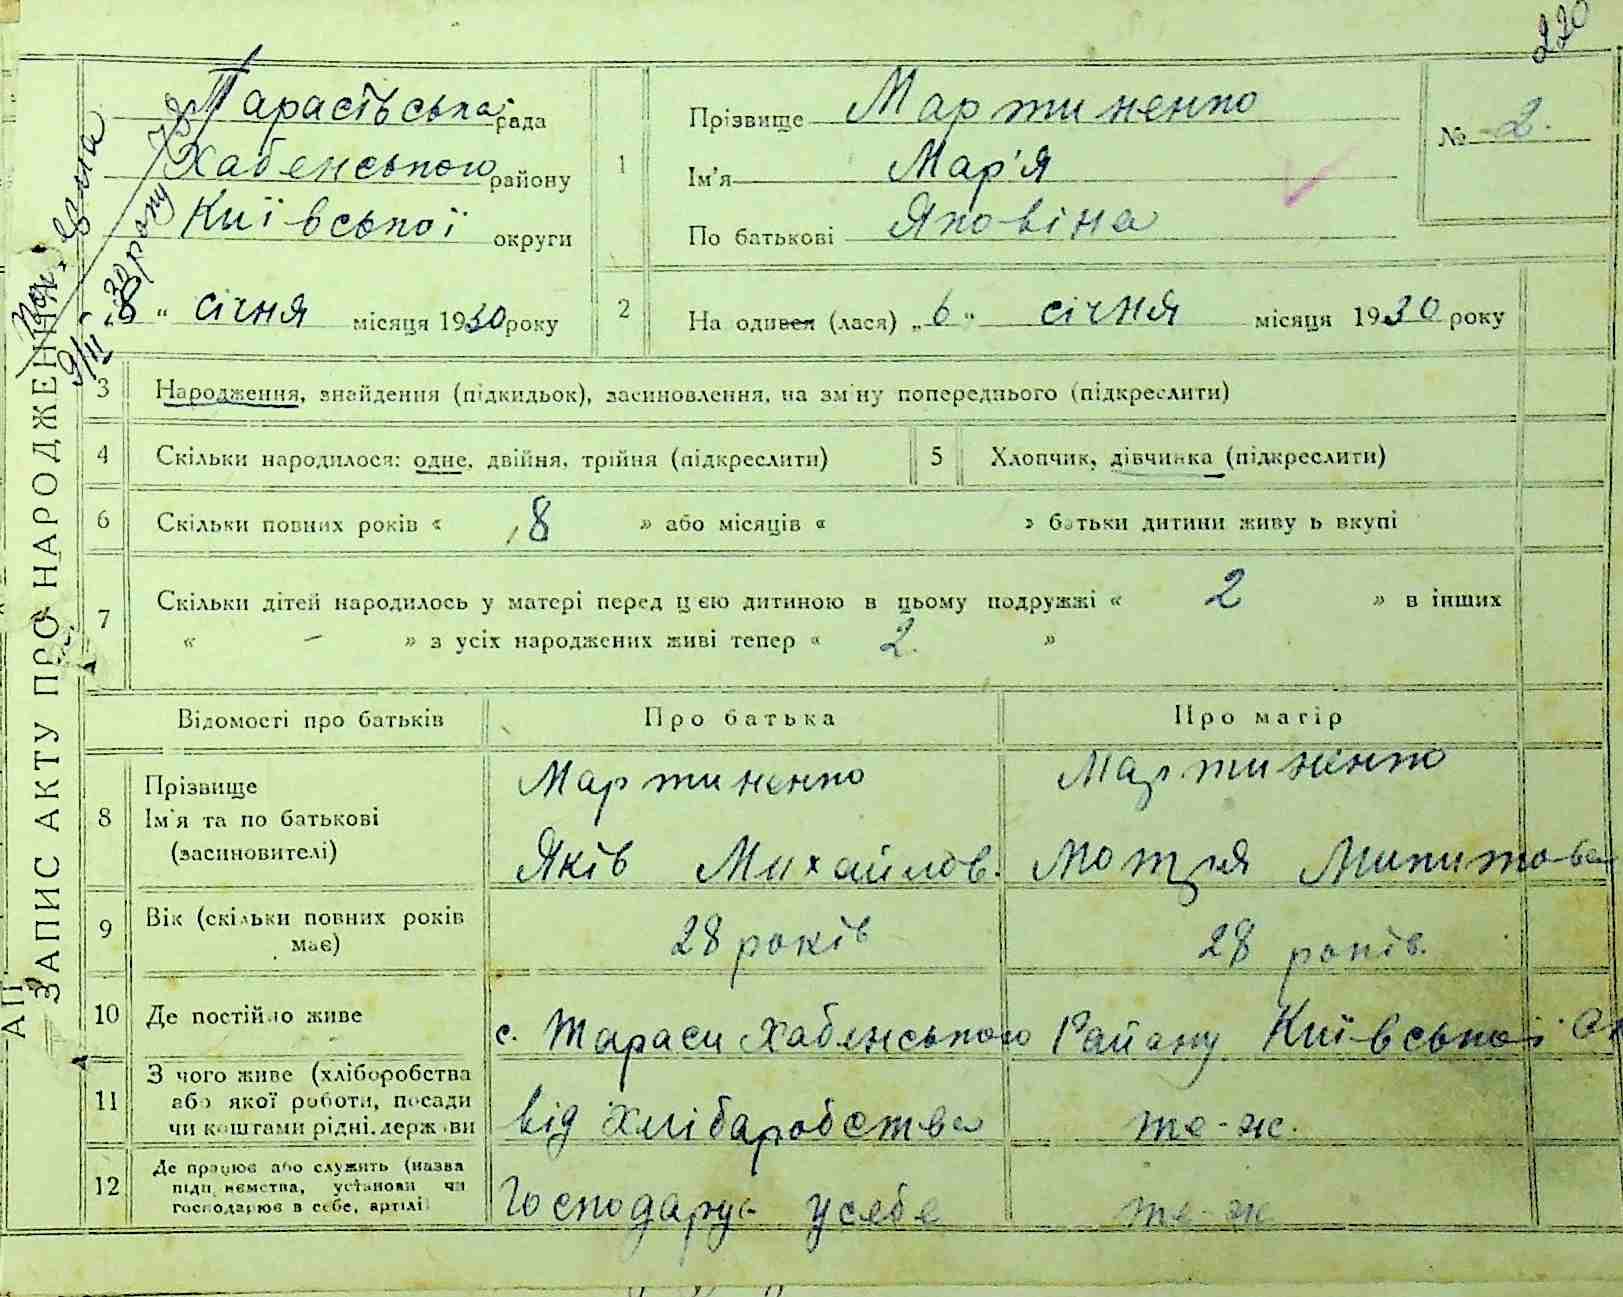 220
ЗАПИС АКТУ ПРО НАРОДЖЕННЯ
Тарасівська рада
Хабенського району
Київської округи
„8“ січня місяця 1930 року
1
Прізвище Мартиненко
Ім'я Мар'я
По батькові Яковіна
№ 2.
2 На одився (лася) „6“ січня місяця 1930 року
3 Народження, знайдення (підкидьок), засиновлення, на зм ну попереднього (підкреслити)
4 Скільки народилося: одне, двійня, трійня (підкреслити)
5 Хлопчик, дівчинка (підкреслити)
6 Скільки повних років « 8 » або місяців « » батьки дитини живу ь вкупі
7 Скільки дітей народилось у матері перед цією дитиною в цьому подружжі « 2 » в інших
« – » з усіх народжених живі тепер « 2. »
Відомості про батьків Про батька Про матір
8 Прізвище Мартиненко Мартиненко
Ім'я та по батькові
(засиновителі) Яків Михайлов. Мотря Микитова
9 Вік (скільки повних років має) 28 років 28 років.
10 Де постійно живе с. Тараси Хабенського Району Київської
11 З чого живе (хліборобства
або якої роботи, посади
чи коштами рідні, держави від Хлібаробства те-ж.
12 Де працює або служить (назва
підприємства, установи чи
господарює в себе, артілі) Господарує усебе те-ж